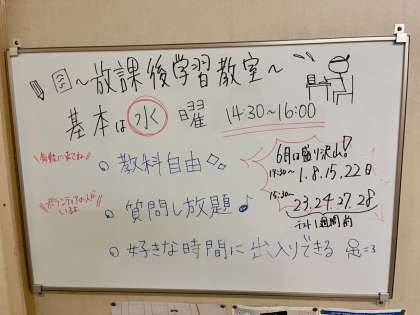 ～放課後学習教室～
基本は水曜 14:30～16:00
気軽に来てね
教科自由
6月は盛り沢山!
14:30～ 1.8.15.22日
ボランティアの人が
いるよ
質問し放題♪
15:30～ 23.24.27.28
テスト1週間前
好きな時間に出入りできる